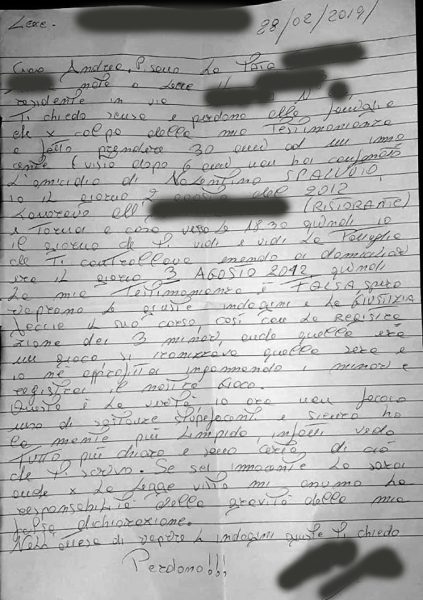 Lecce. 28/02/2019
Ciao Andrea, sono La
nata a Lecce il
residente in via N.
Ti chiedo scusa e perdono alla famiglia
che x colpa della mia Testimonianza
o fatto prendere 30 anni ad un inno
cente e visto dopo 6 anni non hai confessato
L'omicidio di Valentino SPALLUTO,
io il giorno 2 agosto del 2012
Lavoravo all' (RISTORANTE)
e Tornai a casa verso le 18.30 quindi io
il giorno che Ti vidi e vidi La Pattuglia
che Ti controllava essendo ai domiciliari
era il giorno 3 AGOSTO 2012, quindi
La mia Testimonianza è FALSA spero
riaprano Le giuste indagini e La GIUSTIZIA
faccia il suo corso, così con La Registra
zione dei 3 minori, anche quella era
un gioco, si ironizzava quella sera e
io né approfittai ingannando i minori e
registrai il nostro Gioco.
Questa è La verità io ora non faccio
uso di sostanze stupefacenti e sicuro ho
la mente più Limpida, infatti vedo
Tutto più chiaro e sono certa di ciò
che Ti scrivo. Se sei innocente Lo sarai
anche x La Legge visto mi assumo La
responsabilità della gravità della mia
falsa dichiarazione.
Nell' attesa di riaprire le indagini giuste Ti chiedo
Perdono!!!